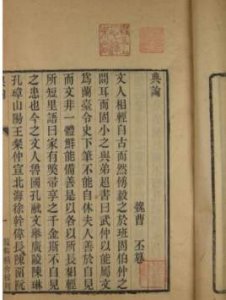 典論
魏曹 丕撰
文人相輕自古而然傅毅之於班固伯仲之
間耳而固小之與弟超書曰武仲以能屬文
為蘭臺令史下筆不能自休夫人善於自見
而文非一體鮮能備善是以各以所長相輕
所短里語曰家有弊帚享之千金斯不自見
之患也今之文人魯國孔融文舉廣陵陳琳
孔璋山陽王粲仲宣北海徐幹偉長陳留阮
典論
一